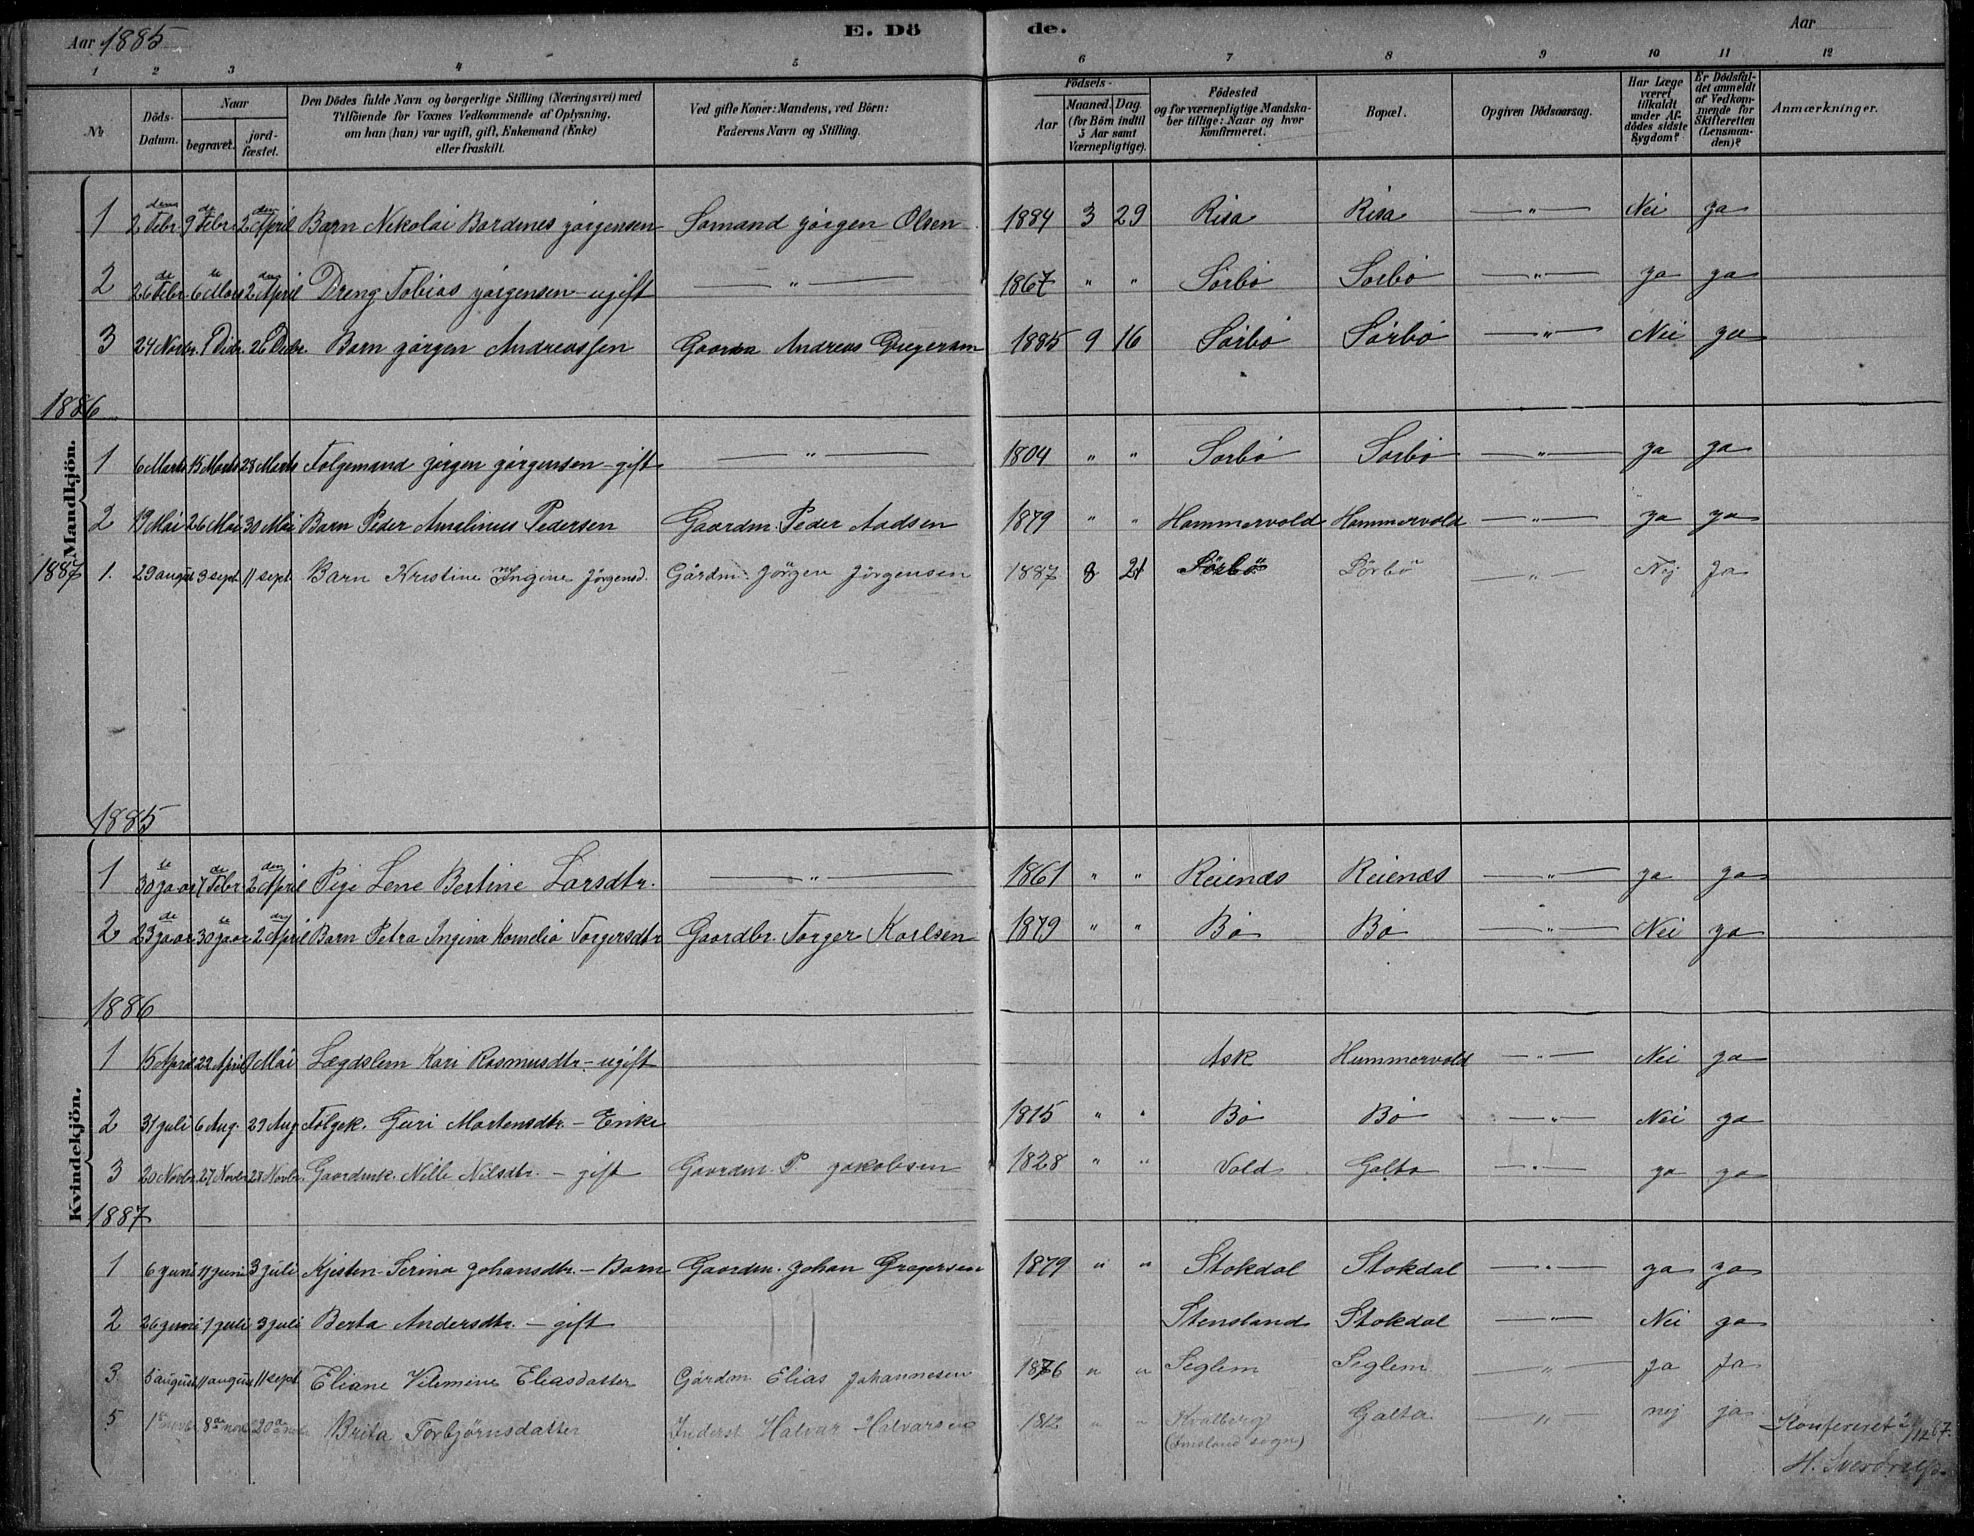 Aar 1885 E. Dö de. Aar
1 2 3 4 5 6 7 8 9 10 11 12
№ Döds-Datum. Naar begravet. jord-fæstet. Den Dödes fulde Navn og borgerlige Stilling (Næringsvei) med Tilföiende for Voxnes Vedkommende af Oplysning, om han (hun) var ugift, gift, Enkemand (Enke) eller fraskilt. Ved gifte Koner: Mandens, ved Börn: Faderens Navn og Stilling. Födsels- Aar Maaned. Dag. (for Börn indtil 5 Aar samt Værnepligtige). Födested og for værnepligtige Mandskaber tillige: Naar og hvor Konfirmeret. Bopæl. Opgiven Dödsaarsag. Har Læge været tilkaldt under Afdödes sidste Sygdom? Er Dödsfaldet anmeldt af Vedkommende for Skifteretten (Lensmanden)? Anmærkninger.
Mandkjön.
1 2 den Febr. 9 de Febr. 2 den April Barn Nikolai Bardines Jørgensen Sømand Jørgen Olsen 1884 3 29 Risa Risa — " — Nei ja
2 26 de Febr. 6 te Mars 2 den April Dreng Tobias Jørgensen - ugift — " — 1867 " " Sørbø Sørbø — " — ja ja
3 24 Novbr. 1 Decbr. 26 Decbr. Barn Jørgen Andreassen Gaardm Andreas Gregersen 1885 9 16 Sørbø Sørbø — " — Nei ja
1886
1 6 Marts 15 Marts 28 Marts Følgemand Jørgen Jørgensen - gift — " — 1804 " " Sørbø Sørbø — " — ja ja
2 19 Mai 26 Mai 30 Mai Barn Peder Amalinus Pedersen Gaardm. Peder Aadsen 1879 " " Hammervold Hammervold — " — ja ja
1887 1. 29 august 3 sept 11 sept Barn Kristine Ingine Jörgensd. Gårdm. Jörgen Jörgensen 1887 8 21 Sörbö Sörbö — " — Nej Ja
1885
Kvindekjön.
1 30 te Januar 7 de Febr. 2 den April Pige Lene Bertine Larsdtr. — " — 1861 " " Reienæs Reienæs — " — ja ja
2 23 de Januar 30 te Januar 2 den April Barn Petra Ingina Kornelia Torgersdtr Gaardbr. Torger Karlsen 1879 " " Bø Bø — " — Nei ja
1886
1 15 April 22 April 1 Mai Lægdslem Kari Rasmusdtr. - ugift Ask Hummervold — " — Nei ja
2 31 juli 6 Aug. 29 Aug Følgek. Guri Mortensdtr. - Enke 1815 " " Bø Bø — " — Nei ja
3 20 Novbr. 27 Novbr. 28 Novbr. Gaardmk. Nille Nilsdtr. - gift Gaardm. P. Jakobsen 1828 " " Vold Galta — " — ja ja
1887
1 6 juni 11 juni 3 juli Kjisten Serina Johansdtr. - Barn Gaardm. Johan Gregersen 1879 " " Stokdal Stokdal — " — ja ja
2 26 juni 1 juli 3 juli Berta Andersdtr. - gift Stensland Stokdal — " — Nei ja
3 5 august 11 august 11 sept Eliane Vilemine Eliasdatter Gårdm Elias Johannesen 1876 " " Seglem Seglem — " — Ja Ja
5 1 novbr 8 de nov 20 de nov Brita Torbjørnsdatter Inderst Halvar Halvarsen 1812 " " Kvalberg (Imsland sogn) Galta — " — nej ja Konfereret 2/12 87.
H. Sverdrup